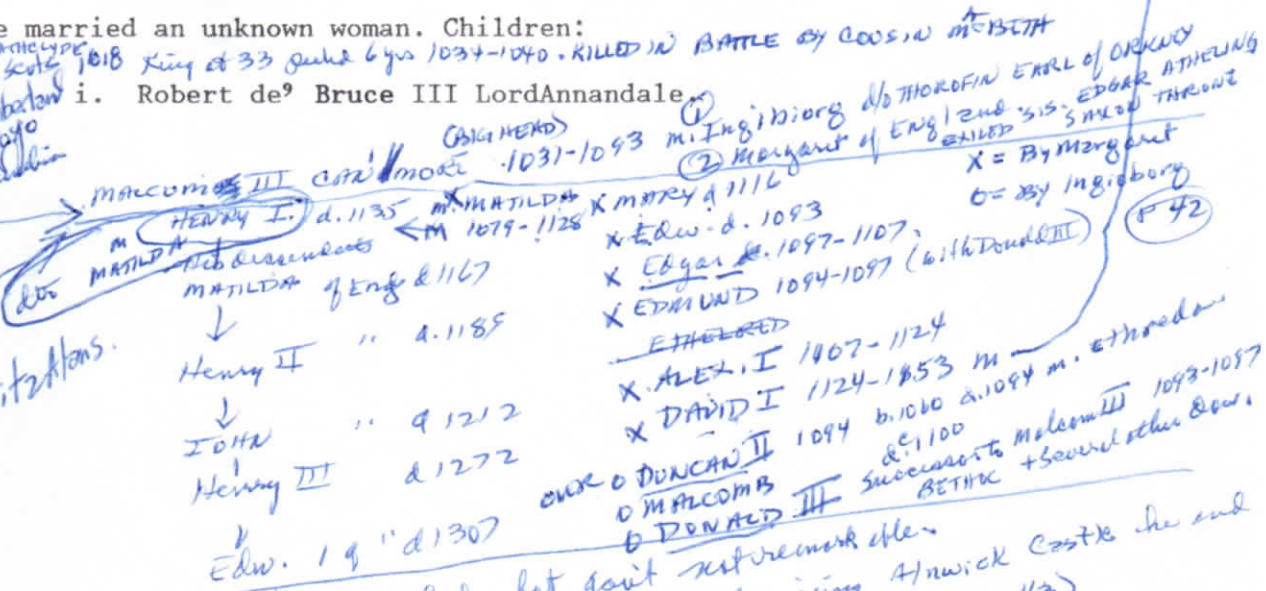 e married an unknown woman. Children:
1018 King at 33 6 yrs 1034-1040. KILLED IN BATTLE BY COUSIN McBETH
i. Robert de⁹ Bruce III LordAnnandale.
(BIG HEAD)
MALCOM III CAN'MORE 1031-1093 m. ① Ingibiorg d/o THOROFIN EARL of ORKNEY
② Margaret of England sis. EDGAR ATHELING
EXILED SAXON THRONE
X = By Margaret
O = By Ingioborg
P 42
HENRY I. d. 1135 m. MATILDA
M 1079-1128
m MATILDA
descendents
MATILDA of Eng d 1167
↓
Henry II " d. 1189
↓
IOHN " d 1212
Henry III d 1272
↓
Edw. 1 " d 1307
X MARY d 1116
X Edw. d. 1093
X Edgar 1097-1107.
X EDMUND 1094-1097 (with Donald III)
ETHELRED
X ALEX. I 1107-1124
X DAVID I 1124-1153 m
O DUNCAN II 1094 b. 1060 d. 1094 m. ethreda
O MALCOMB d. c 1100
O DONALD III Successor to Malcom III 1093-1097
BETHOC + Several other Dau.
itzAlans.
but don't
Alnwick Castle he and